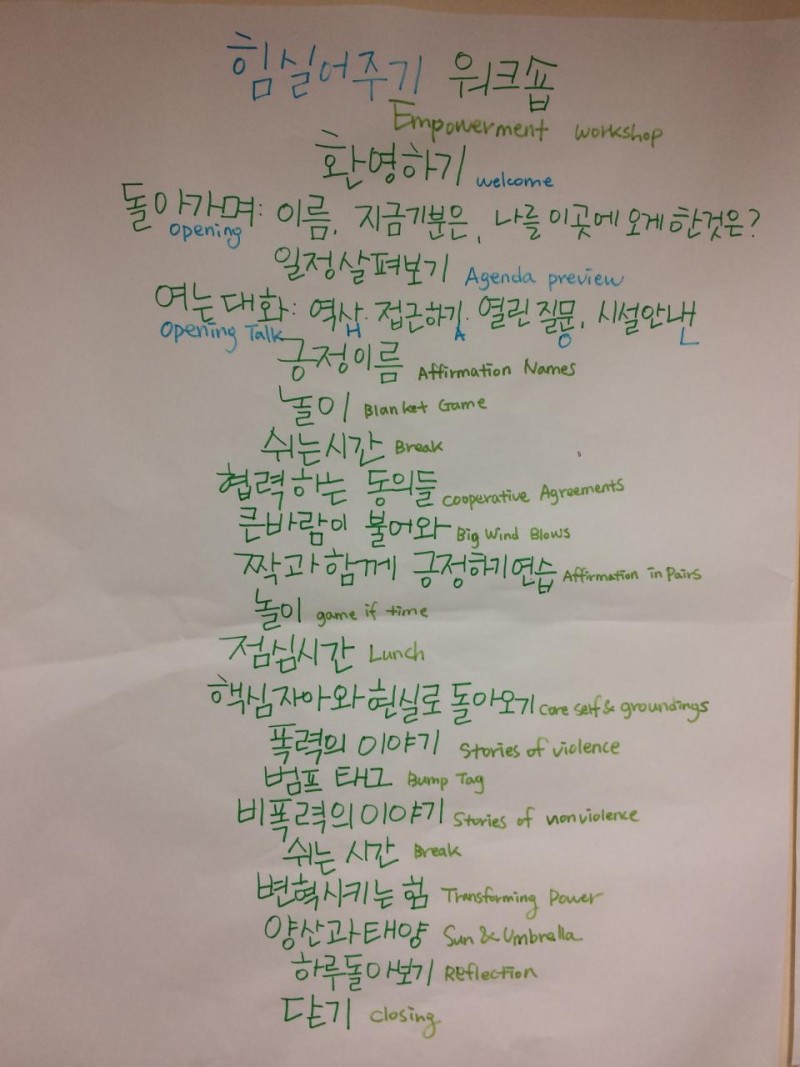 힘실어주기 워크숍
Empowerment workshop
환영하기 welcome
돌아가며: 이름, 지금기분은, 나를 이곳에 오게 한것은?
Opening
일정살펴보기 Agenda preview
여는대화: 역사. 접근하기. 열린 질문, 시설안내
Opening Talk H A O L
긍정이름 Affirmation Names
놀이 Blanket Game
쉬는시간 Break
협력하는 동의들 Cooperative Agreements
큰바람이 불어와 Big Wind Blows
짝과함께 긍정하기연습 Affirmation in Pairs
놀이 game if time
점심시간 Lunch
핵심자아와 현실로 돌아오기 Core self & groundings
폭력의 이야기 Stories of violence
범프 태그 Bump Tag
비폭력의이야기 Stories of nonviolence
쉬는 시간 Break
변혁시키는 힘 Transforming Power
양산과태양 Sun & Umbrella
하루돌아보기 Reflection
닫기 closing